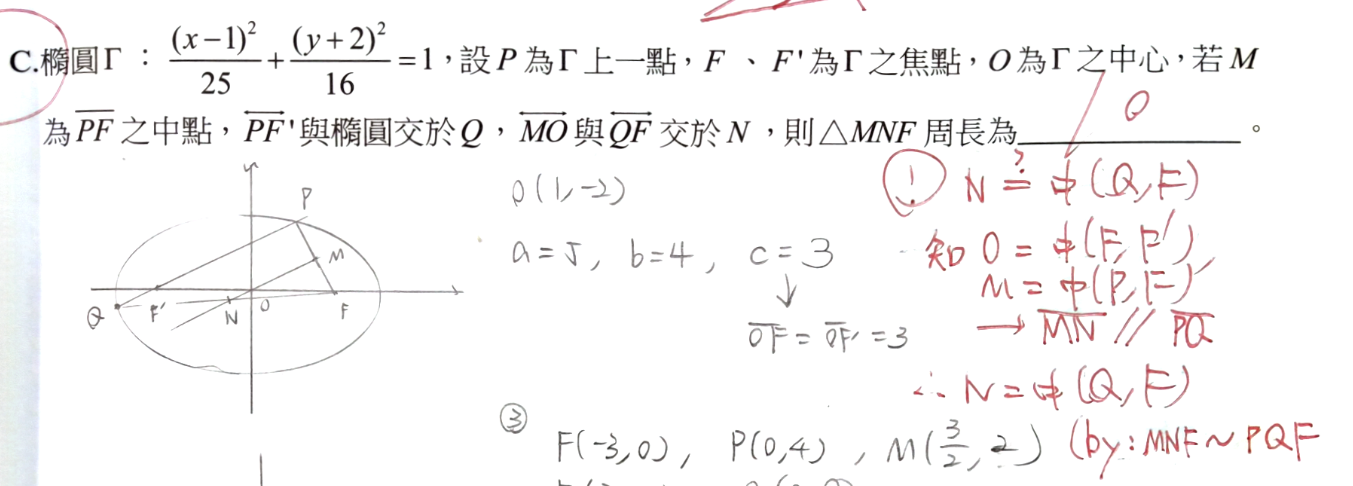 C.橢圓Γ：(x−1)²/25+(y+2)²/16=1，設P為Γ上一點，F、F'為Γ之焦點，O為Γ之中心，若M
為PF之中點，PF'與橢圓交於Q，MO與QF交於N，則△MNF周長為＿＿＿＿。
P
M
Q F' N O F
O(1,-2)
a=5, b=4, c=3
↓
OF=OF'=3
③
F(-3,0), P(0,4), M(3/2,2)
O
① N ?= 中(Q,F)
知 O=中(F,F'),
M=中(P,F)
→ MN // PQ
∴ N=中(Q,F)
(by:MNF~PQF